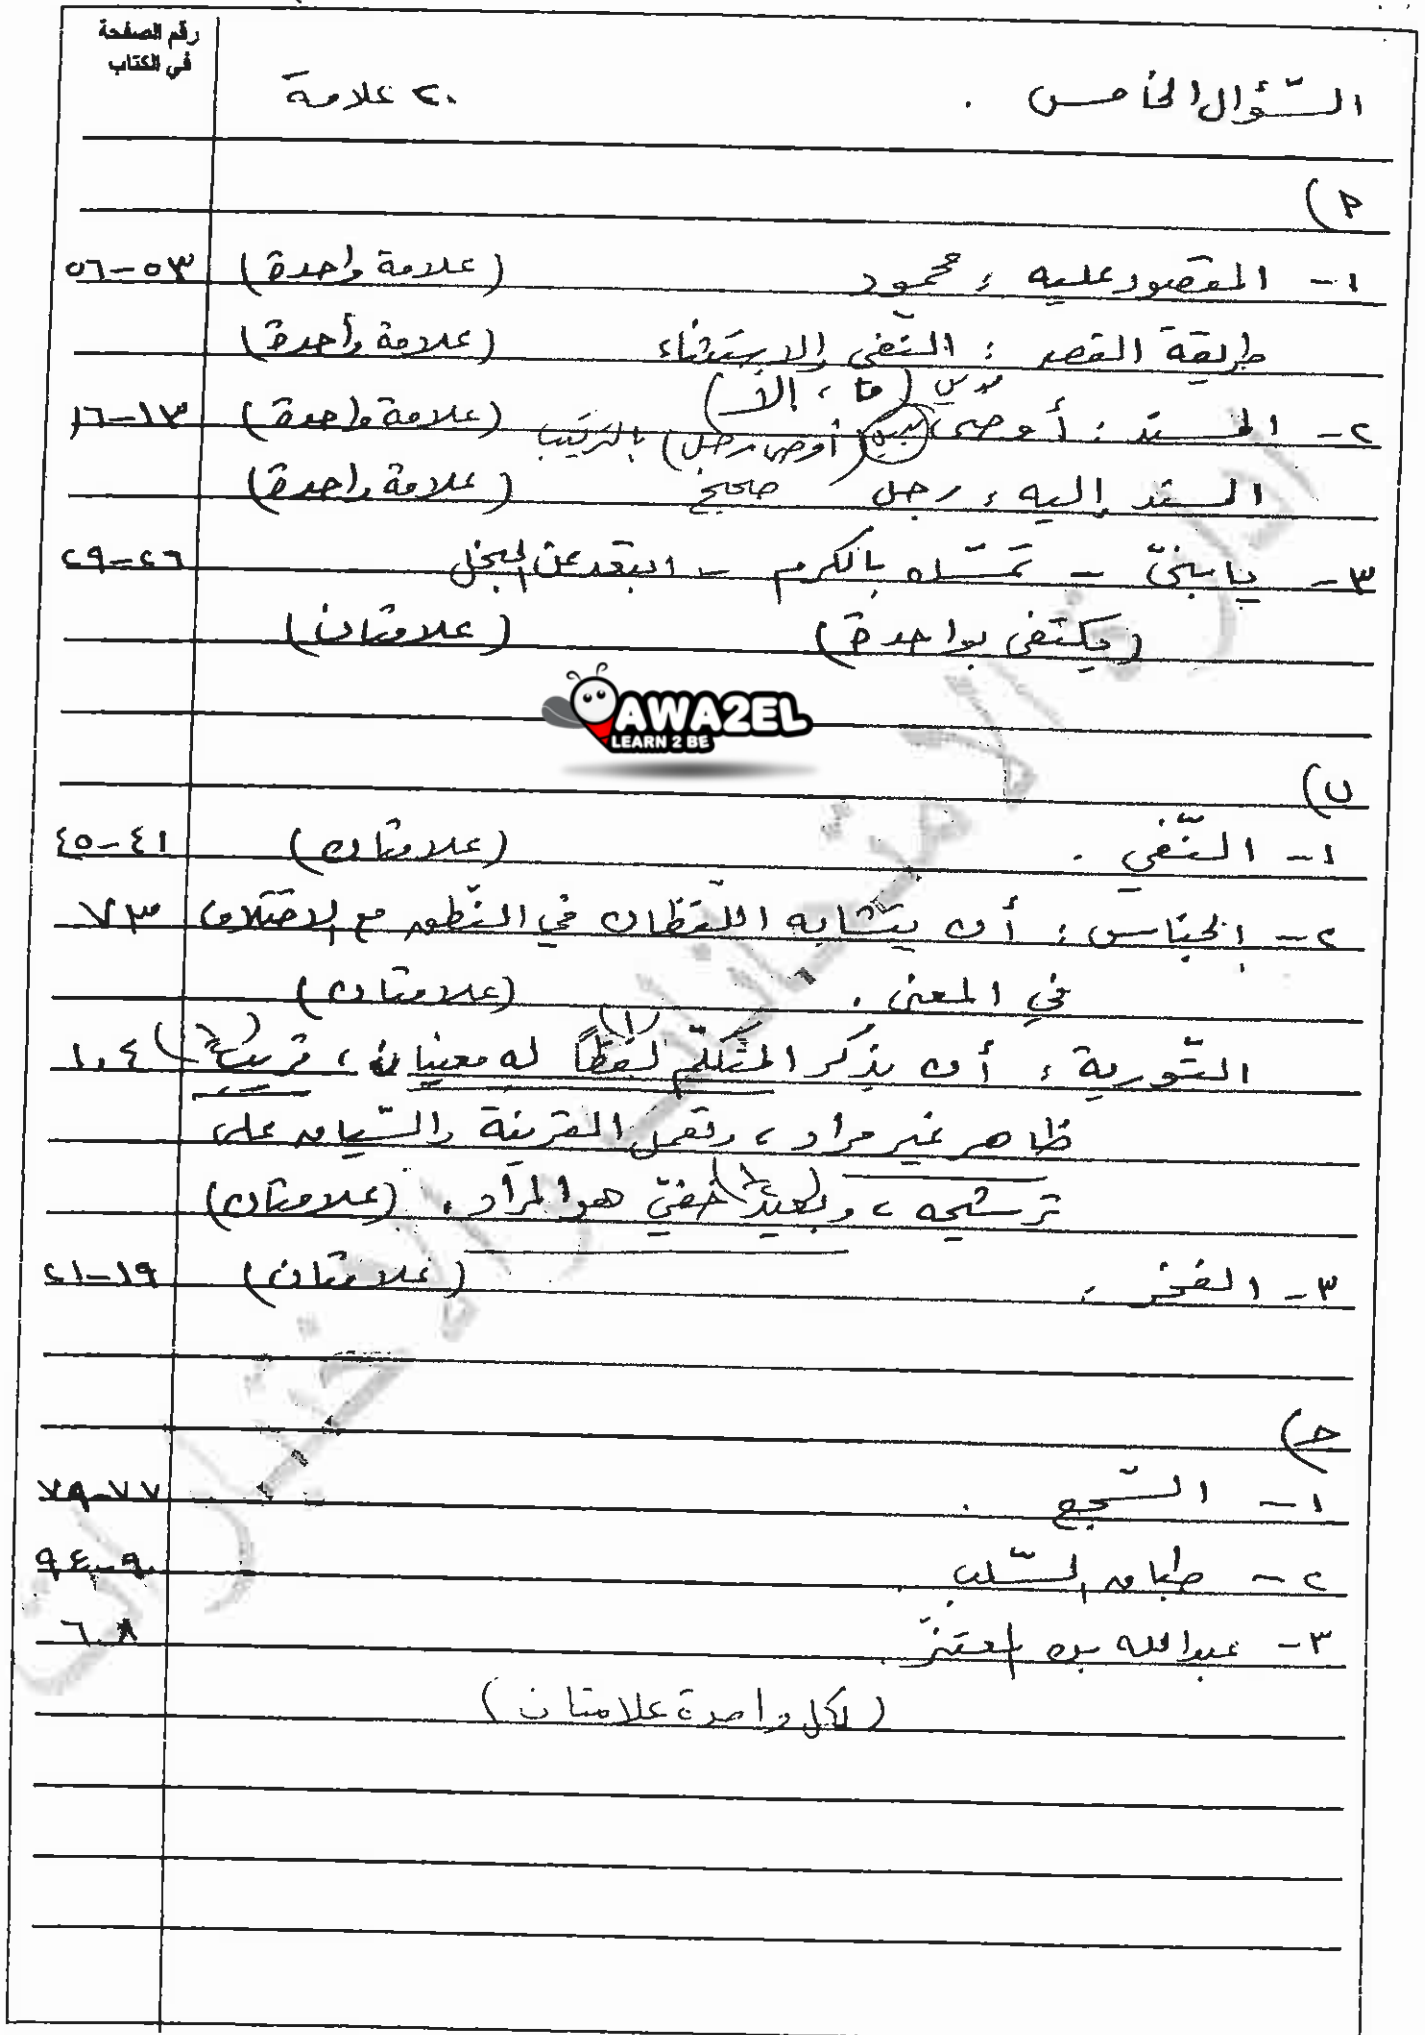 رقم الصفحة
في الكتاب
السّؤال الخامس . ٢٠ علامة
٩)
١- المقصور عليه : محمود (علامة واحدة) ٥٣-٥٦
طريقة القصر : النّفي والاستثناء (علامة واحدة)
(ما ، إلّا)
٢- المسند : أوصى (أوصى، رجل) بالترتيب (علامة واحدة) ١٣-١٦
المسند إليه : رجل صحيح (علامة واحدة)
٣- يا بنيّ - تمسّك بالكرم - ابتعد عن البخل ٢٦-٢٩
(يكتفى بواحدة) (علامتان)
AWA2EL
LEARN 2 BE
ب)
١- النّفي . (علامتان) ٤١-٤٥
٢- الجناس : أن يتشابه اللفظان في النّطق مع الاختلاف ٧٣
في المعنى . (علامتان)
التّورية : أن يذكر المتكلّم لفظاً له معنيان ، قريب ١٠٤
(١)
ظاهر غير مراد ، وتعمل القرينة والسّياق على
ترشيحه ، وبعيد خفيّ هو المراد . (علامتان)
٣- الفخر . (علامتان) ١٩-٢١
ج)
١- السّجع . ٧٧-٧٩
٢- طباق السّلب . ٩٠-٩٤
٣- عبدالله بن المعتزّ . ٦٠٨
(لكل واحدة علامتان)